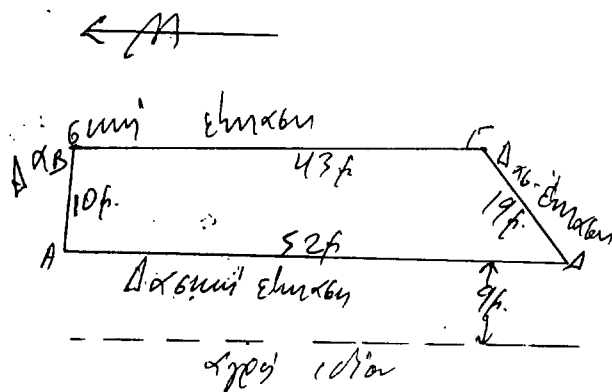 Δασική έκταση
Β
Γ
43μ.
Δασ. έκταση
10μ.
19μ.
52μ
Α
Δ
Δασική έκταση
9μ.
αγρός ιδίου